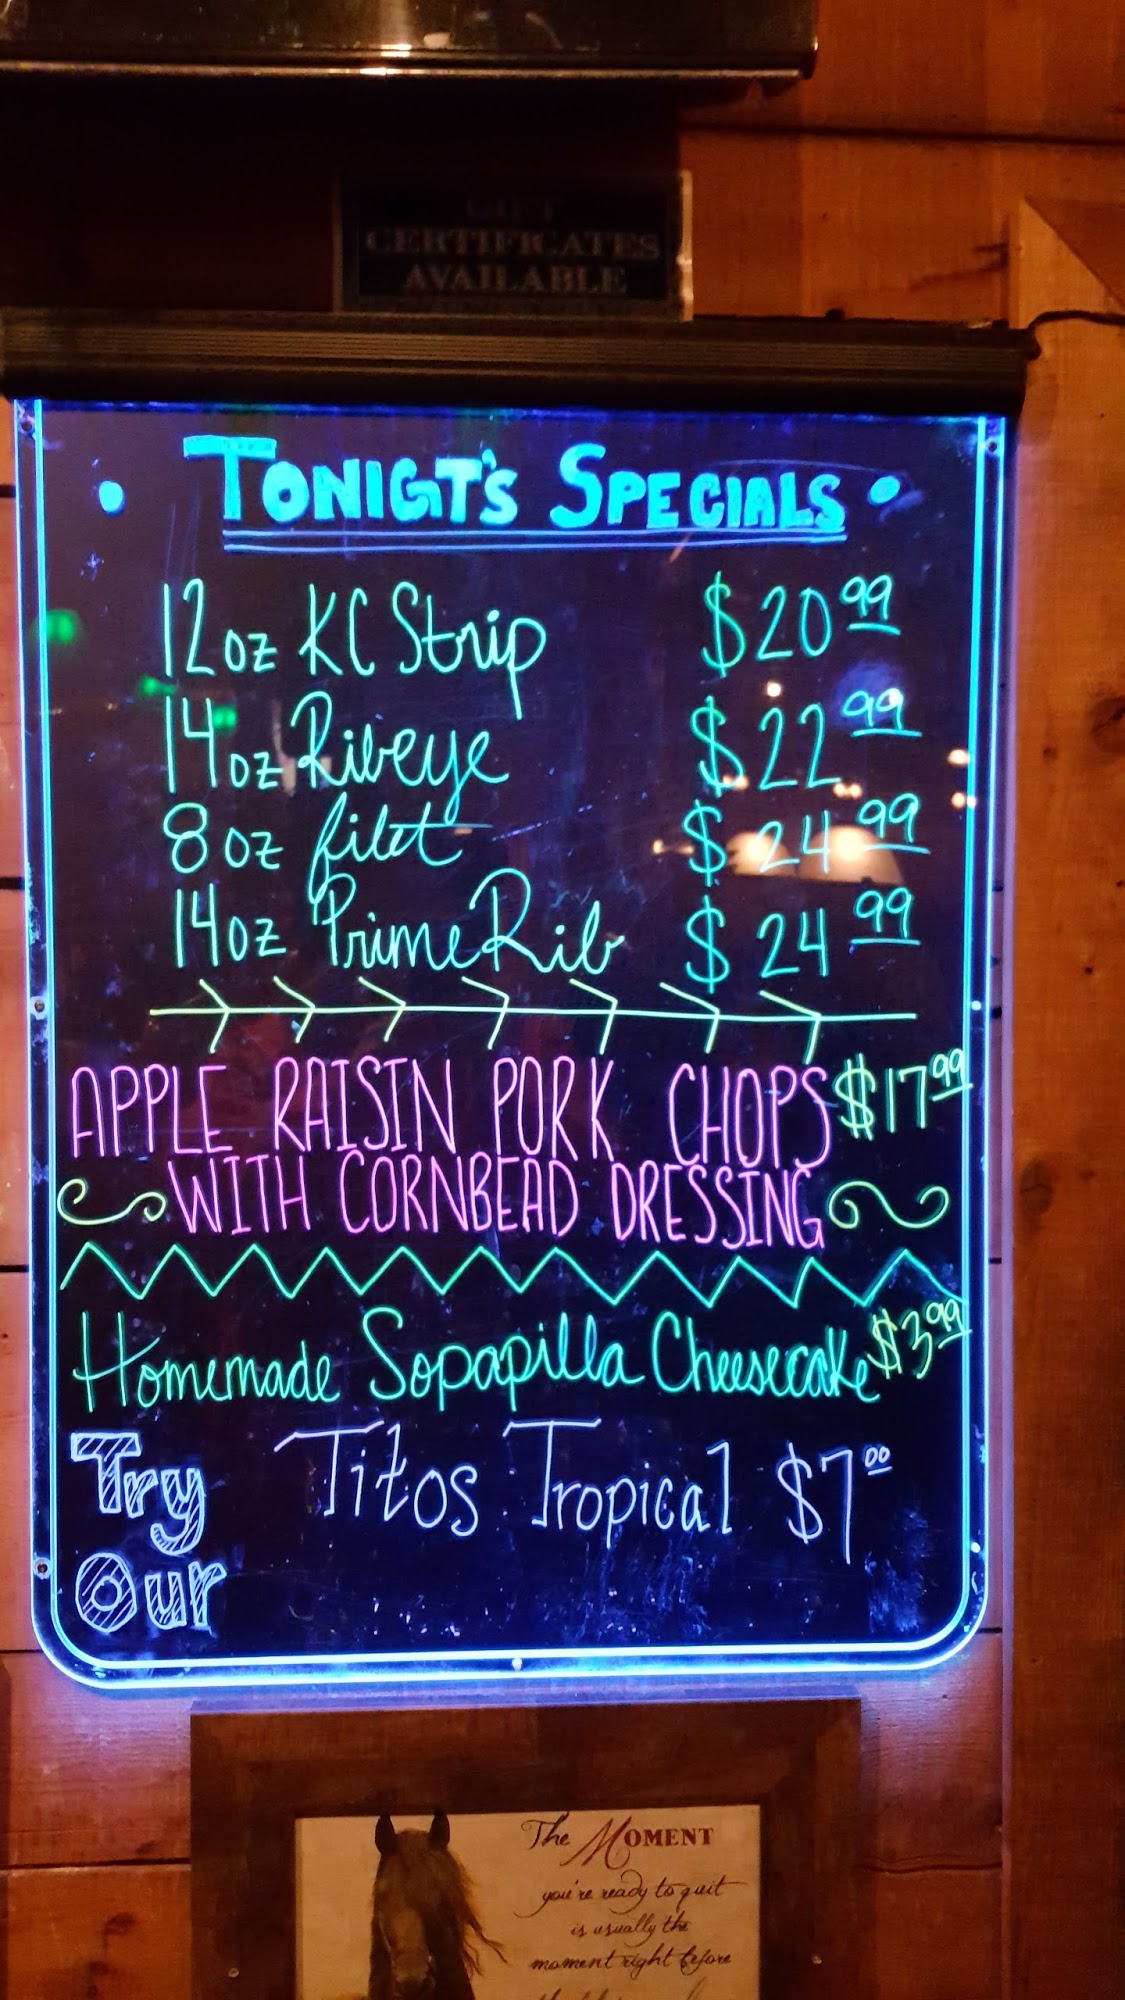 GIFT
CERTIFICATES
AVAILABLE
TONIGT'S SPECIALS
12oz KC Strip $20.99
14oz Ribeye $22.99
8oz filet $24.99
14oz Prime Rib $24.99
APPLE RAISIN PORK CHOPS $17.99
WITH CORNBEAD DRESSING
Homemade Sopapilla Cheesecake $3.99
Try Titos Tropical $7.00
Our
The MOMENT
you're ready to quit
is usually the
moment right before